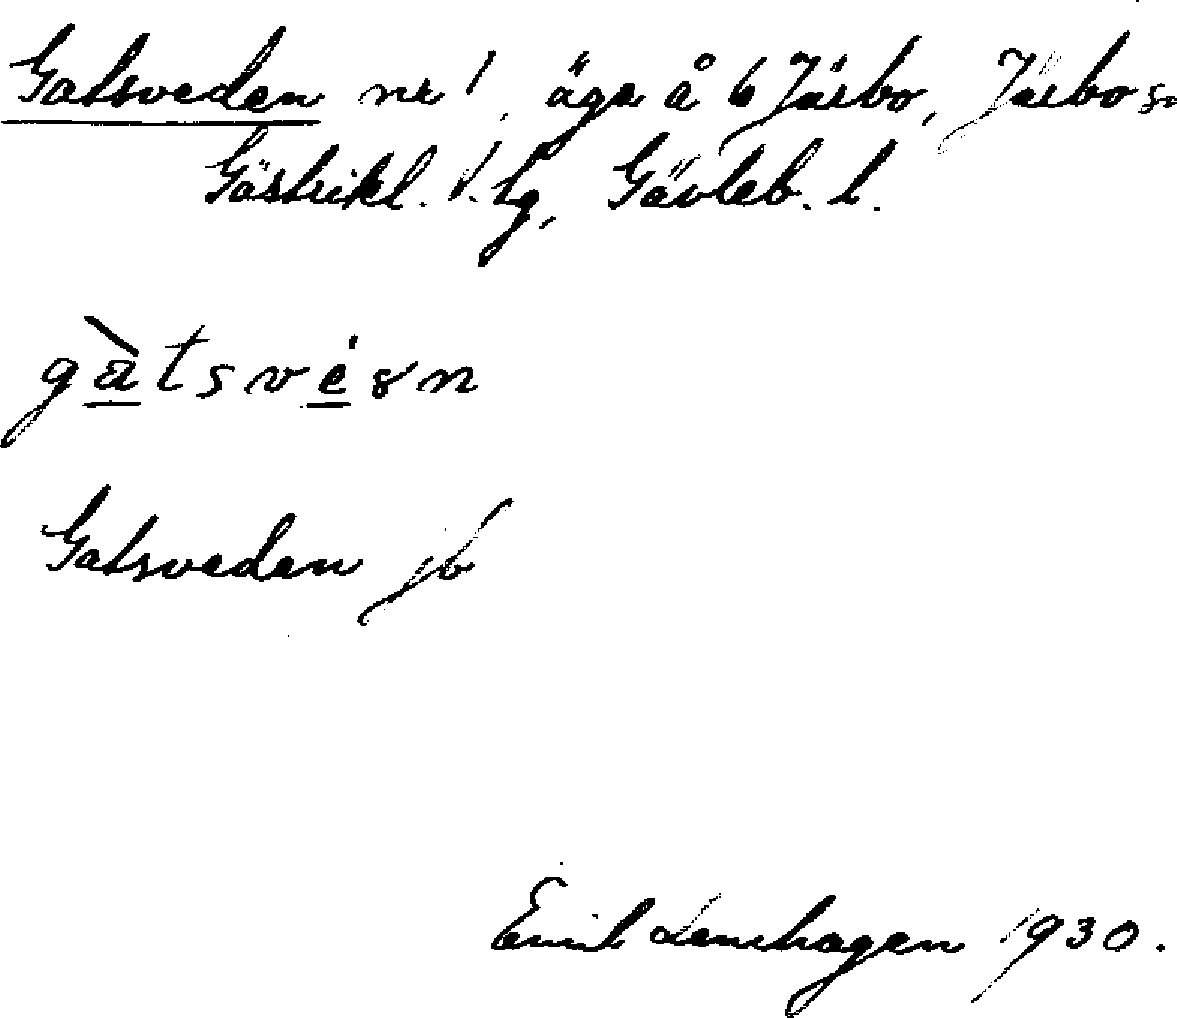 Gatsveden nr 1, äga å 6 Järbo, Järbo sn
Gästrikl. V. tg, Gävleb. l.
gàtsvésn
Gatsveden jb
Emil Lenhagen 1930.